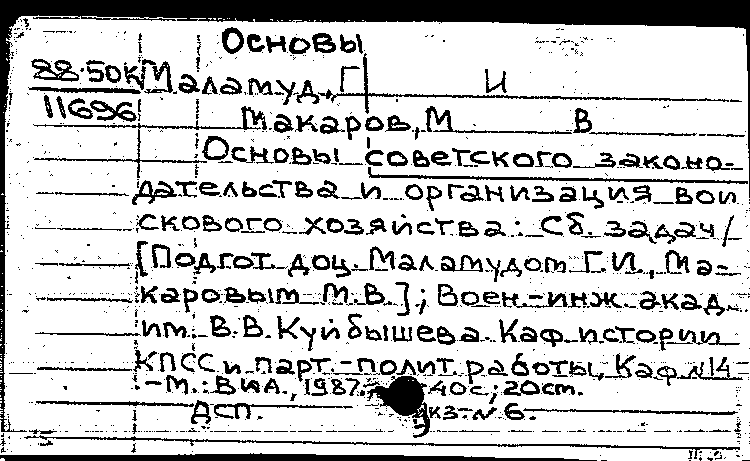 Основы
88.50К Маламуд, Г И
11696
Макаров, М В
Основы советского законо-
дательства и организация вои
скового хозяйства: Сб. задач/
[Подгот. доц. Маламудом Г.И., Ма-
каровым М.В.]; Воен.-инж. акад.
им. В.В. Куйбышева. Каф. истории
КПСС и парт.-полит. работы, Каф. №14
-М.: ВИА., 1987. 40с; 20см.
ДСП. экз. № 6.